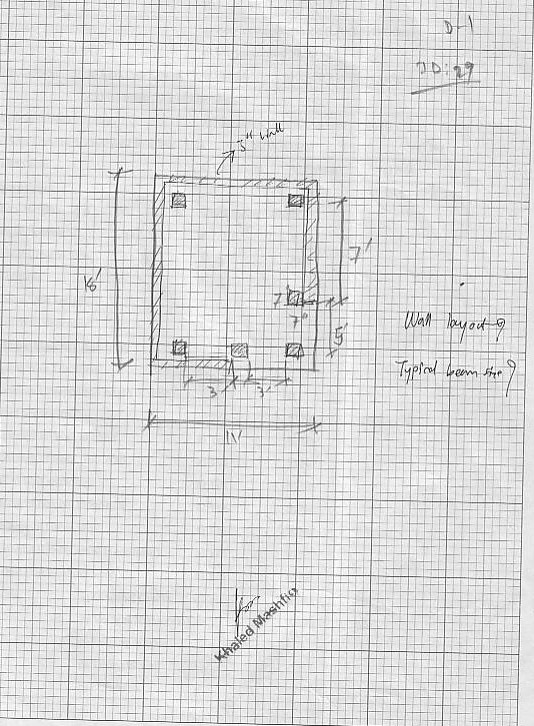 D-1
ID: 29
3" wall
16'
7'
7'
7"
5'
Wall layout?
Typical beam size?
3'
3'
11'
Khaled Mashfiq